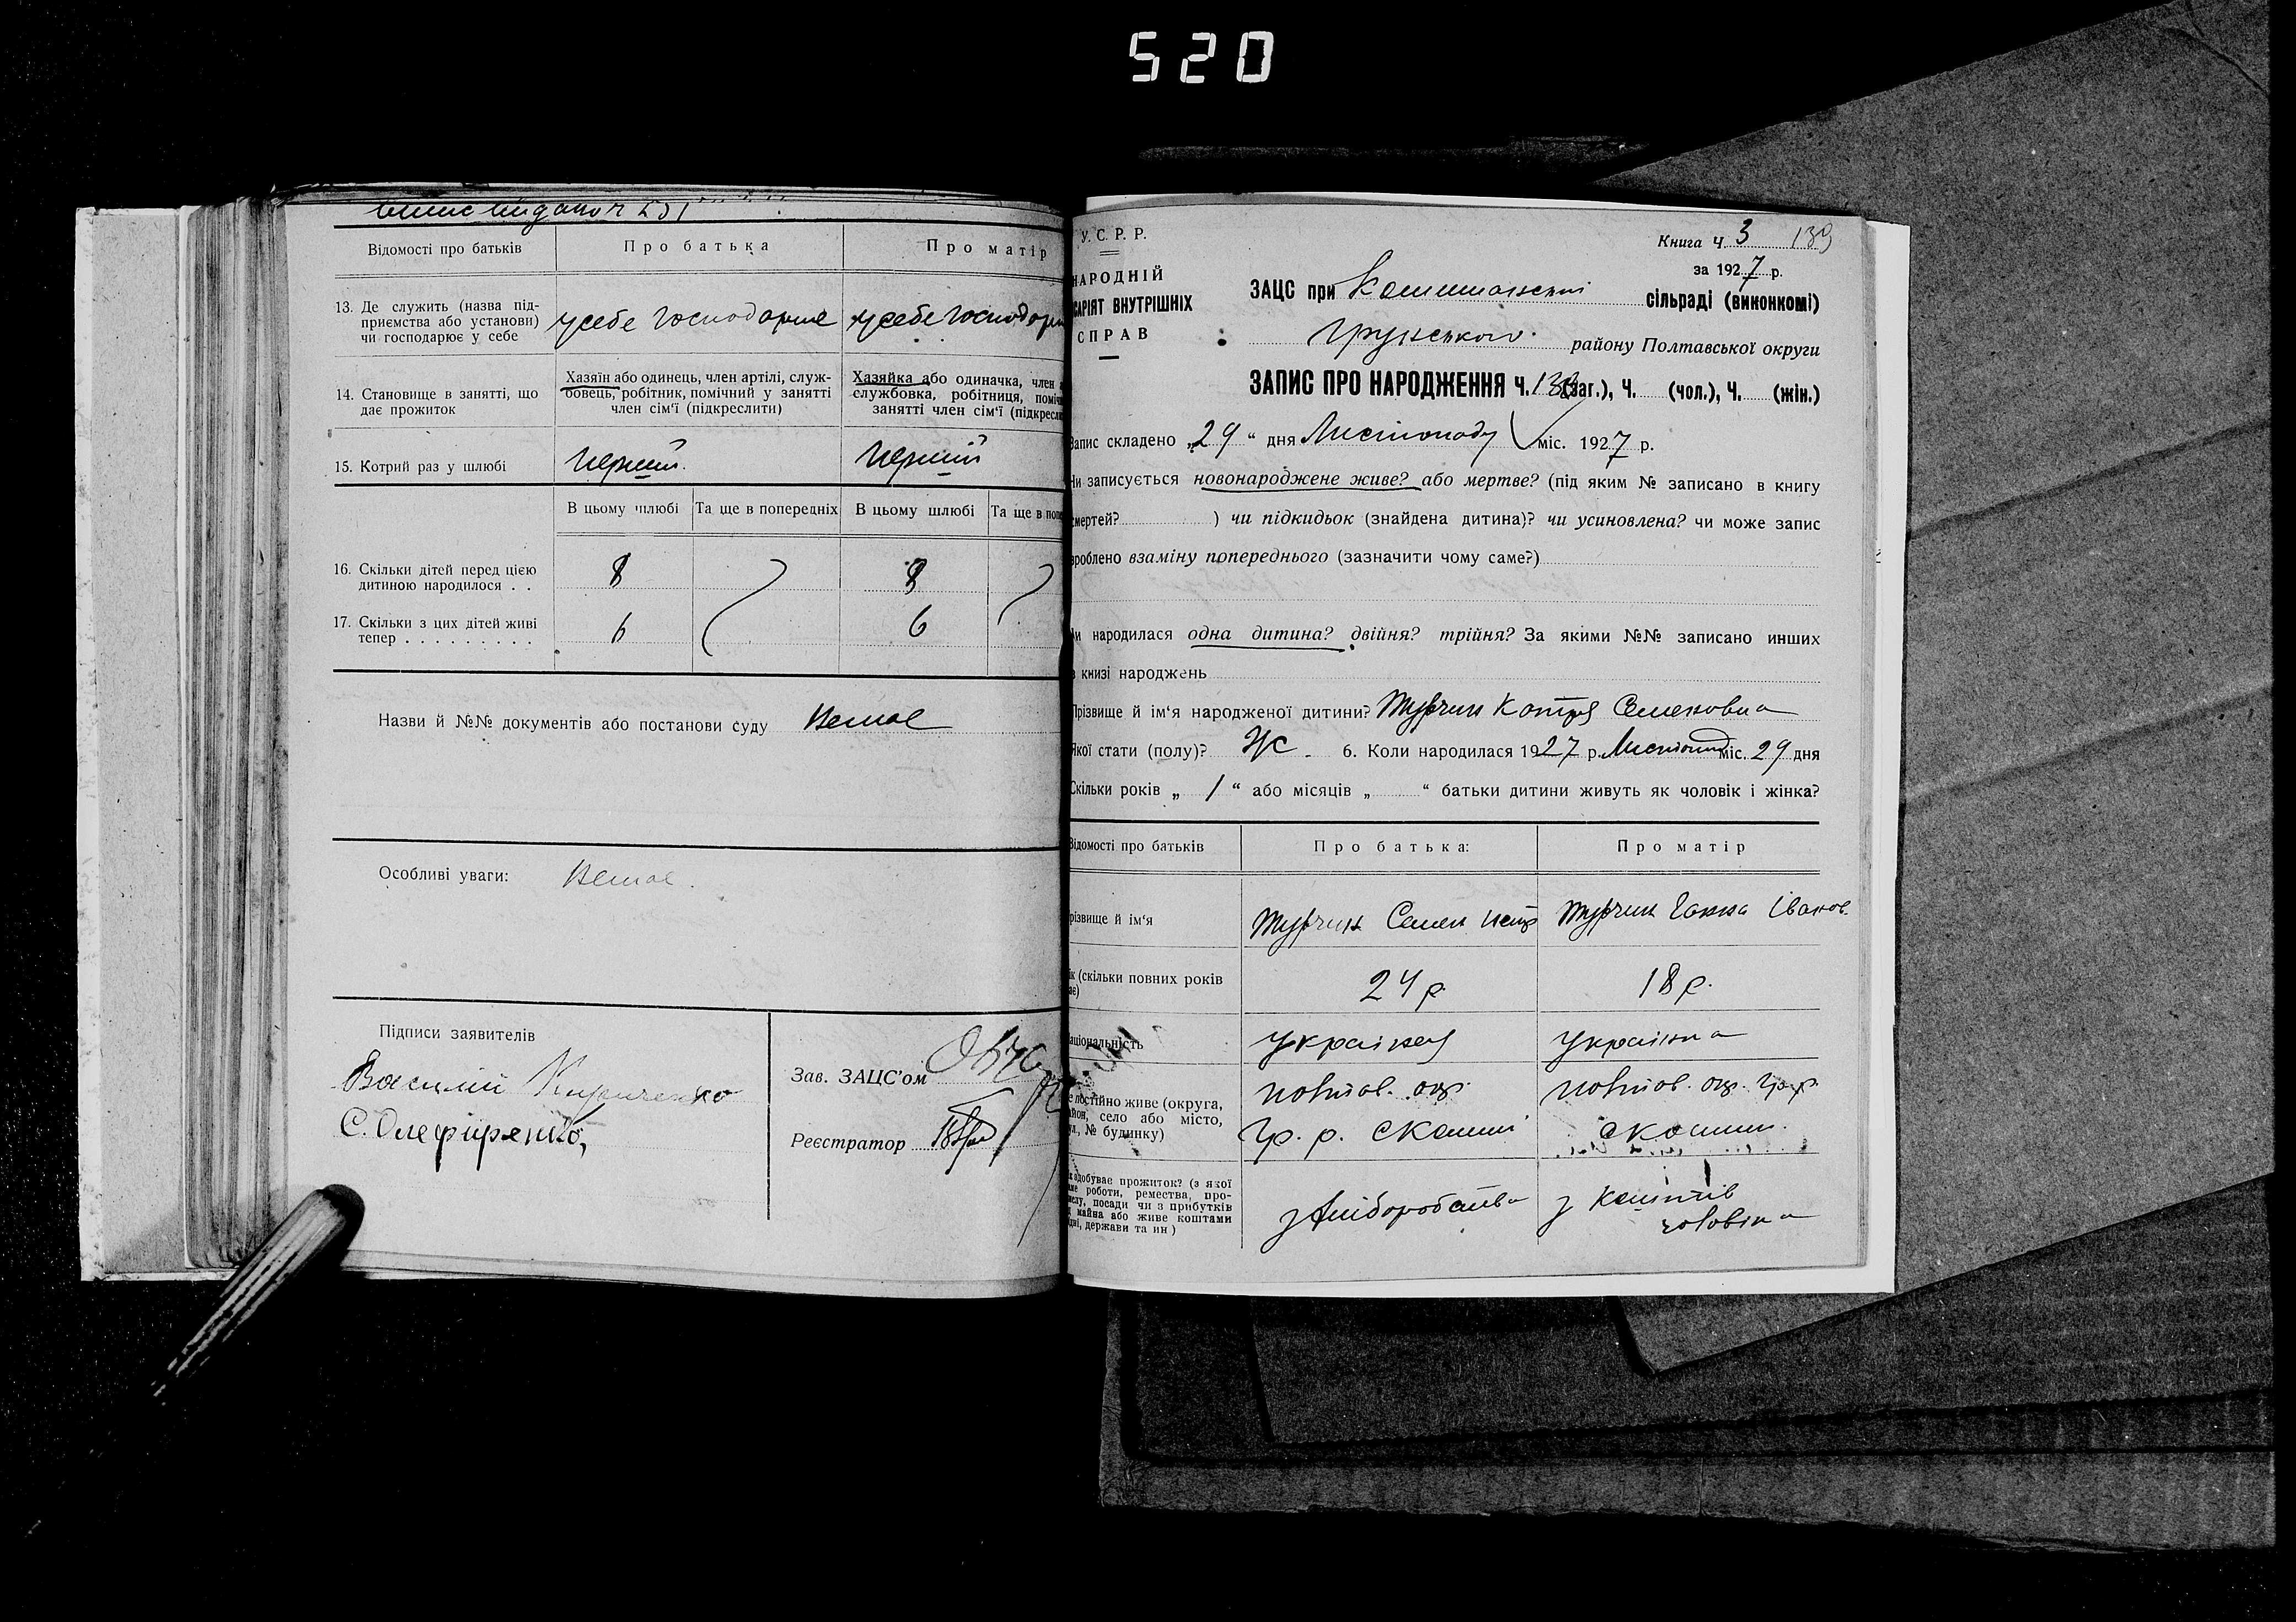 520
Відомості про батьків
Про батька
Про матір
13. Де служить (назва під-
приємства або установи)
чи господарює у себе
у себе господарює
у себе господарює
14. Становище в занятті, що
дає прожиток
Хазяїн або одинець, член артілі, служ-
бовець, робітник, помічний у занятті
член сім'ї (підкреслити)
Хазяйка або одиначка, член
службовка, робітниця, поміч
занятті член сім'ї (підкресли
15. Котрий раз у шлюбі
Перший.
Перший
В цьому шлюбі
Та ще в попередніх
В цьому шлюбі
Та ще в попе
16. Скільки дітей перед цією
дитиною народилося . .
8
8
17. Скільки з цих дітей живі
тепер . . . . . . . . .
6
6
Назви й №№ документів або постанови суду Немає
Особливі уваги: Немає.
Підписи заявителів
Василий Кириченко
С. Олефіренко,
Зав. ЗАЦС'ом
Реєстратор
У. С. Р. Р.
НАРОДНІЙ
САРІЯТ ВНУТРІШНІХ
СПРАВ
Книга Ч 3 139
за 1927 р.
ЗАЦС при сільраді (виконкомі)
Грунського району Полтавської округи
ЗАПИС ПРО НАРОДЖЕННЯ Ч. 139 (заг.), Ч. (чол.), Ч. (жін.)
Запис складено „29“ дня Листопаду міс. 1927 р.
Чи записується новонароджене живе? або мертве? (під яким № записано в книгу
смертей? ) чи підкидьок (знайдена дитина)? чи усиновлена? чи може запис
зроблено взаміну попереднього (зазначити чому саме?)
Чи народилася одна дитина? двійня? трійня? За якими №№ записано инших
в книзі народжень
Прізвище й ім'я народженої дитини? Турчин Котря Семеновна
Якої стати (полу)? Ж. 6. Коли народилася 1927 р. Листопад міс. 29 дня
Скільки років „ 1 “ або місяців „ “ батьки дитини живуть як чоловік і жінка?
Відомості про батьків
Про батька:
Про матір
різвище й ім'я
Турчин Семен Петр
Турчин Ганна Іванов.
ік (скільки повних років
ає)
24 р.
18 р.
аціональність
Українец
Українка
е постійно живе (округа,
айон, село або місто,
ул., № будинку)
Полтав. окр.
Гр. р.
Полтав. окр. Гр. р.
к здобуває прожиток? (з якої
аме роботи, ремества, про-
мислу, посади чи з прибутків
д майна або живе коштами
ідні, держави та ин)
з хліборобства
з коштів
чоловіка